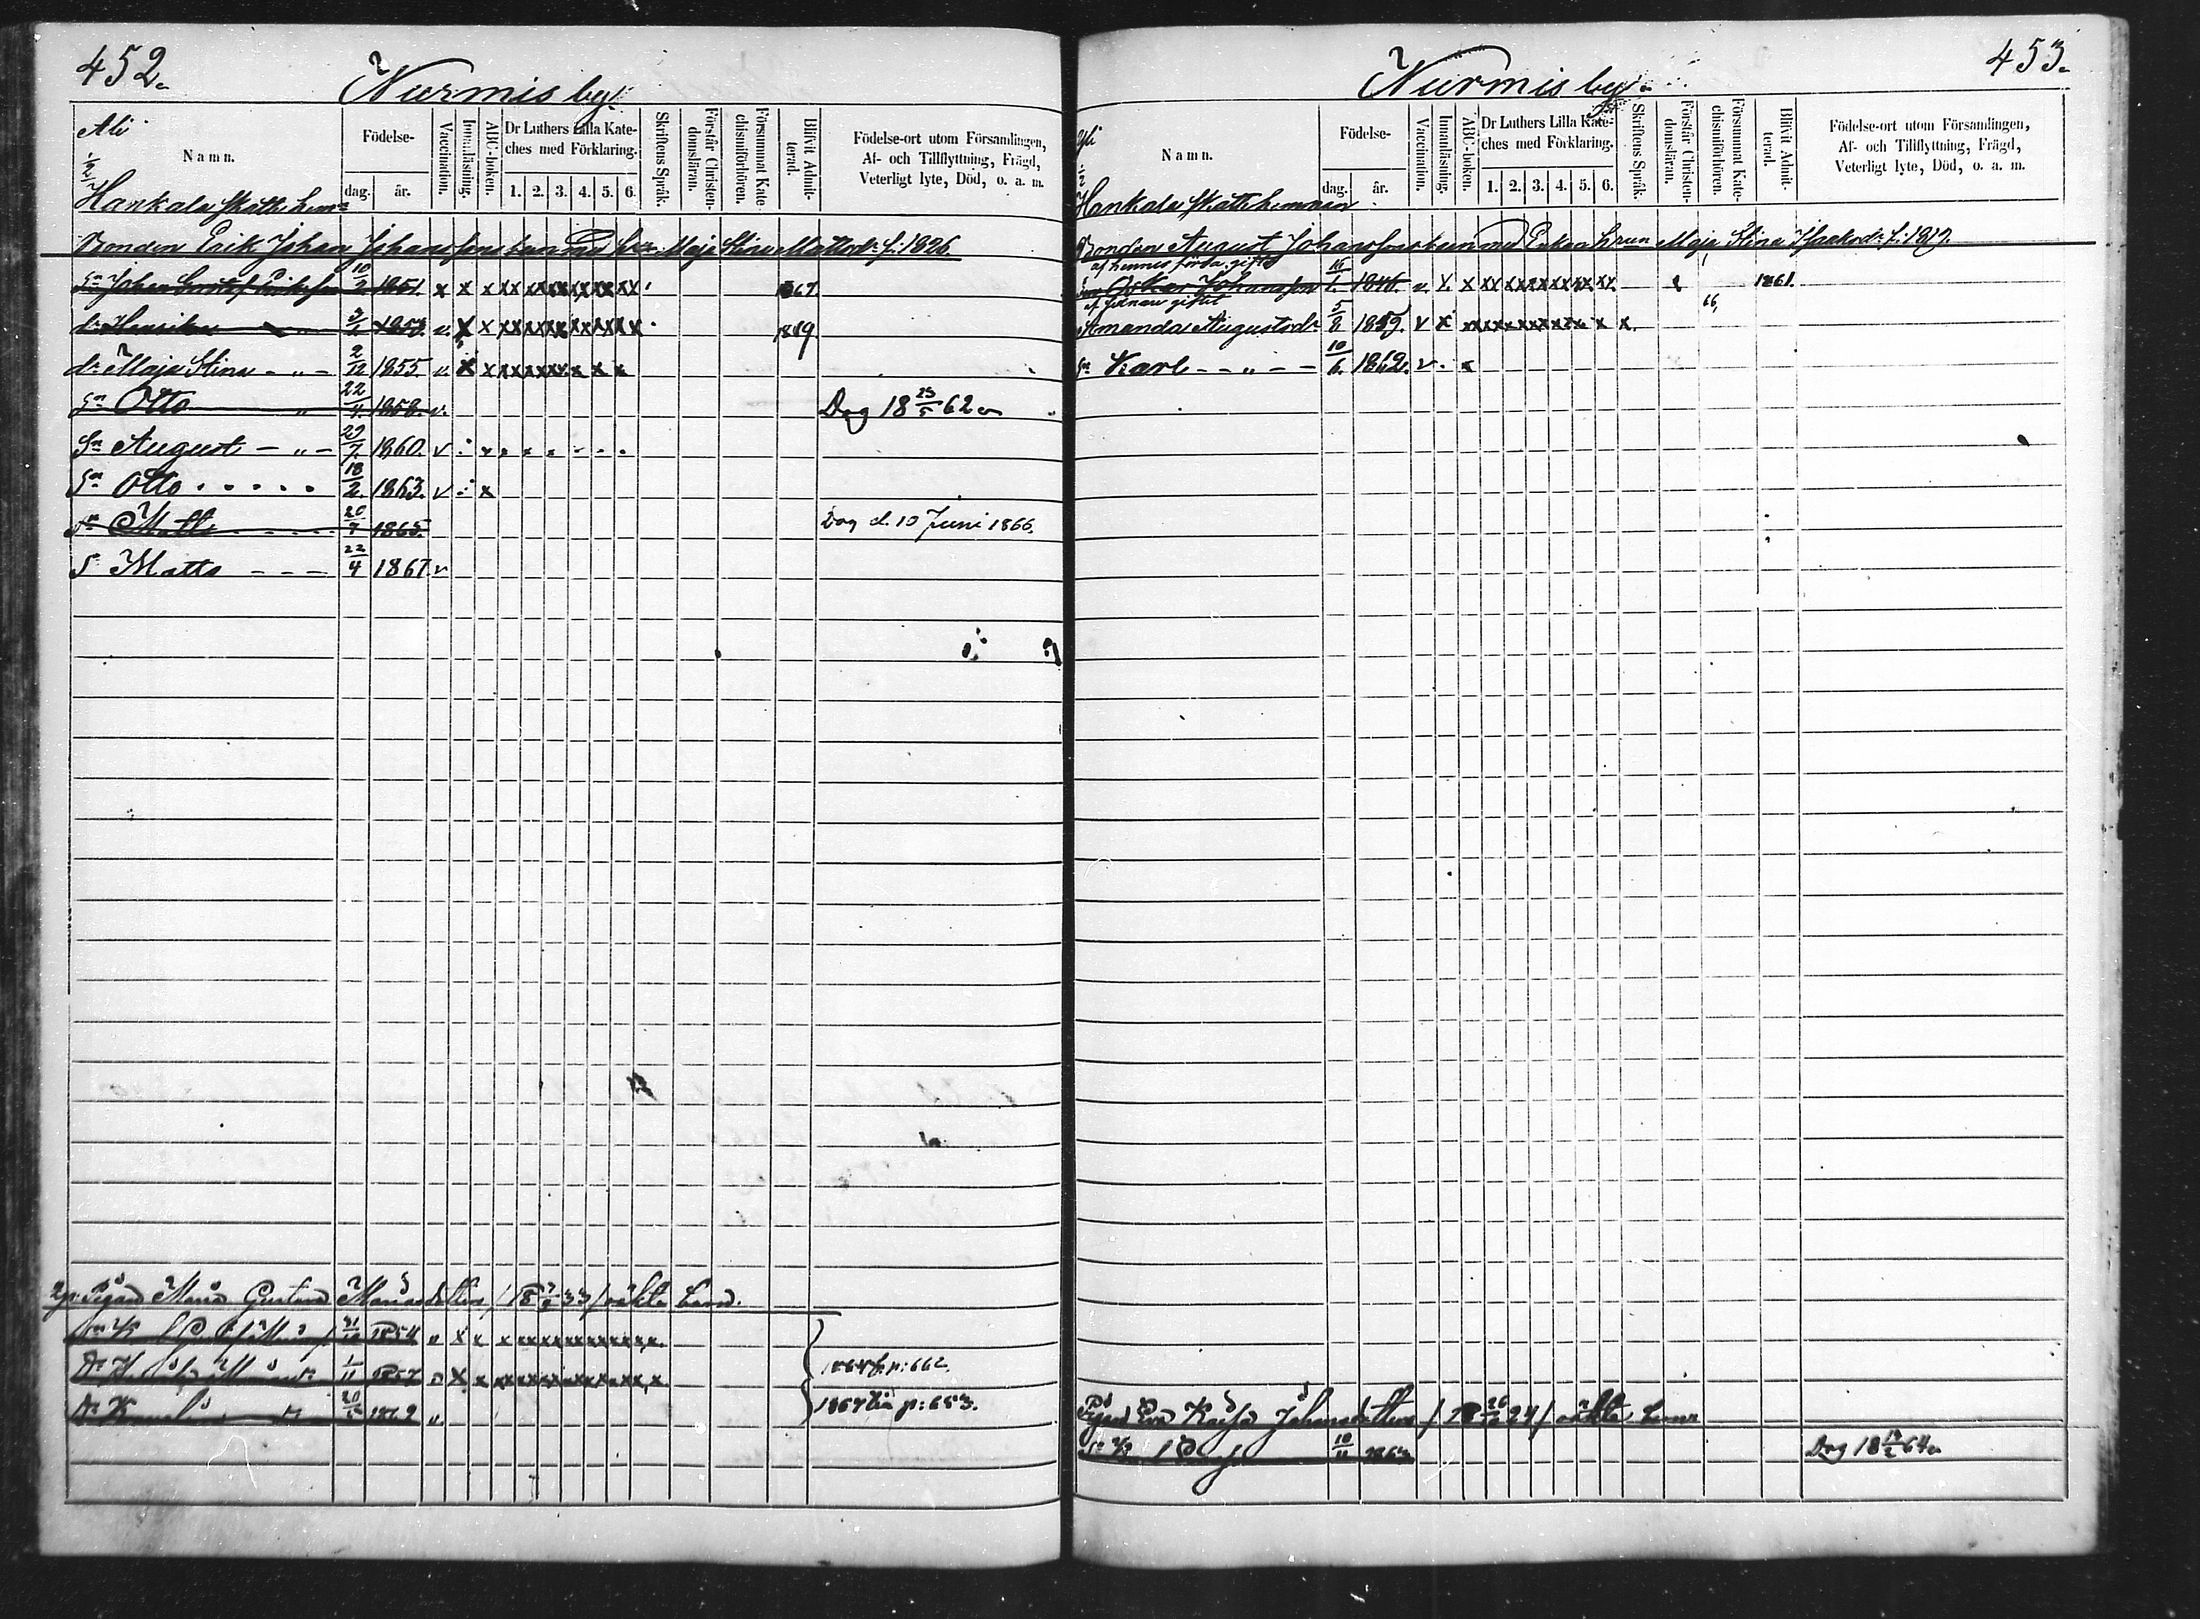 452.
Nurmis by.
Ali
Namn.
Födelse-
dag.
år.
Vaccination.
Innanläsning.
ABC-boken.
Dr Luthers Lilla Kate-
ches med Förklaring.
1. 2. 3. 4. 5. 6.
Skriftens Språk.
Förstår Christen-
domsläran.
Försummat Kate
chismiförhören.
Blifvit Admit-
terad.
Födelse-ort utom Församlingen,
Af- och Tillflyttning, Frägd,
Veterligt lyte, Död, o. a. m.
1/2 Hankala Skatte hem:n
Bonden Erik Johan Johanssons barn med hu: Maja Stina Mattsdr f. 1826.
Sn Johan Gustaf Eriksson 10/2 1851. x x x xx xx xx xx xx xx 1867.
dr Henrika " 1853. v. x x xx xx xx xx xx xx 1869.
dr Maja Stina - " - 2/12 1855. v. x x x xx xx x x x
Sn Otto " 22/4. 1858. v. Dog 18 23/5 62.
Sn August - " - 29/7. 1860. v
Sn Otto 18/2. 1863. v x
Sn Matts 20/7 1865. Dog d. 10 Juni 1866.
S. Matts - - - 22/4 1867. v
Pigan Maria Gustava Mariasdotters / 18 33 / oäkta barn.
1854 v x x x xx xx xx xx xx x
1/11 1857 x x xx xx xx xx xx x
p: 662.
20/5 1862 v. 1867 p: 653.
453.
Nurmis by.
Ali
Namn.
Födelse-
dag.
år.
Vaccination.
Innanläsning.
ABC-boken.
Dr Luthers Lilla Kate-
ches med Förklaring.
1. 2. 3. 4. 5. 6.
Skriftens Språk.
Förstår Christen-
domsläran.
Försummat Kate-
chismiförhören.
Blifvit Admit-
terad.
Födelse-ort utom Församlingen,
Af- och Tillflyttning, Frägd,
Veterligt lyte, Död, o. a. m.
1/2 Hankala Skattehemman
Bonden August Johanssons barn med Enkan hrun Maja Stina Isaksdr f. 1819.
af hennes förra gifte
Oskar Johansson 16/1. 1846. v. x. x xx xx xx xx xx xx. 1861.
af senare giftet 66,
Amanda Augustsdr 5/8 1859. v x x xx xx xx xx x x x.
Sn Karl - - " - - 10/6. 1862. v. x
Pigan Eva Kajsa Johansdotters / 18 26 24 / oäkta barn
10/11 1863 Dog 18 64.